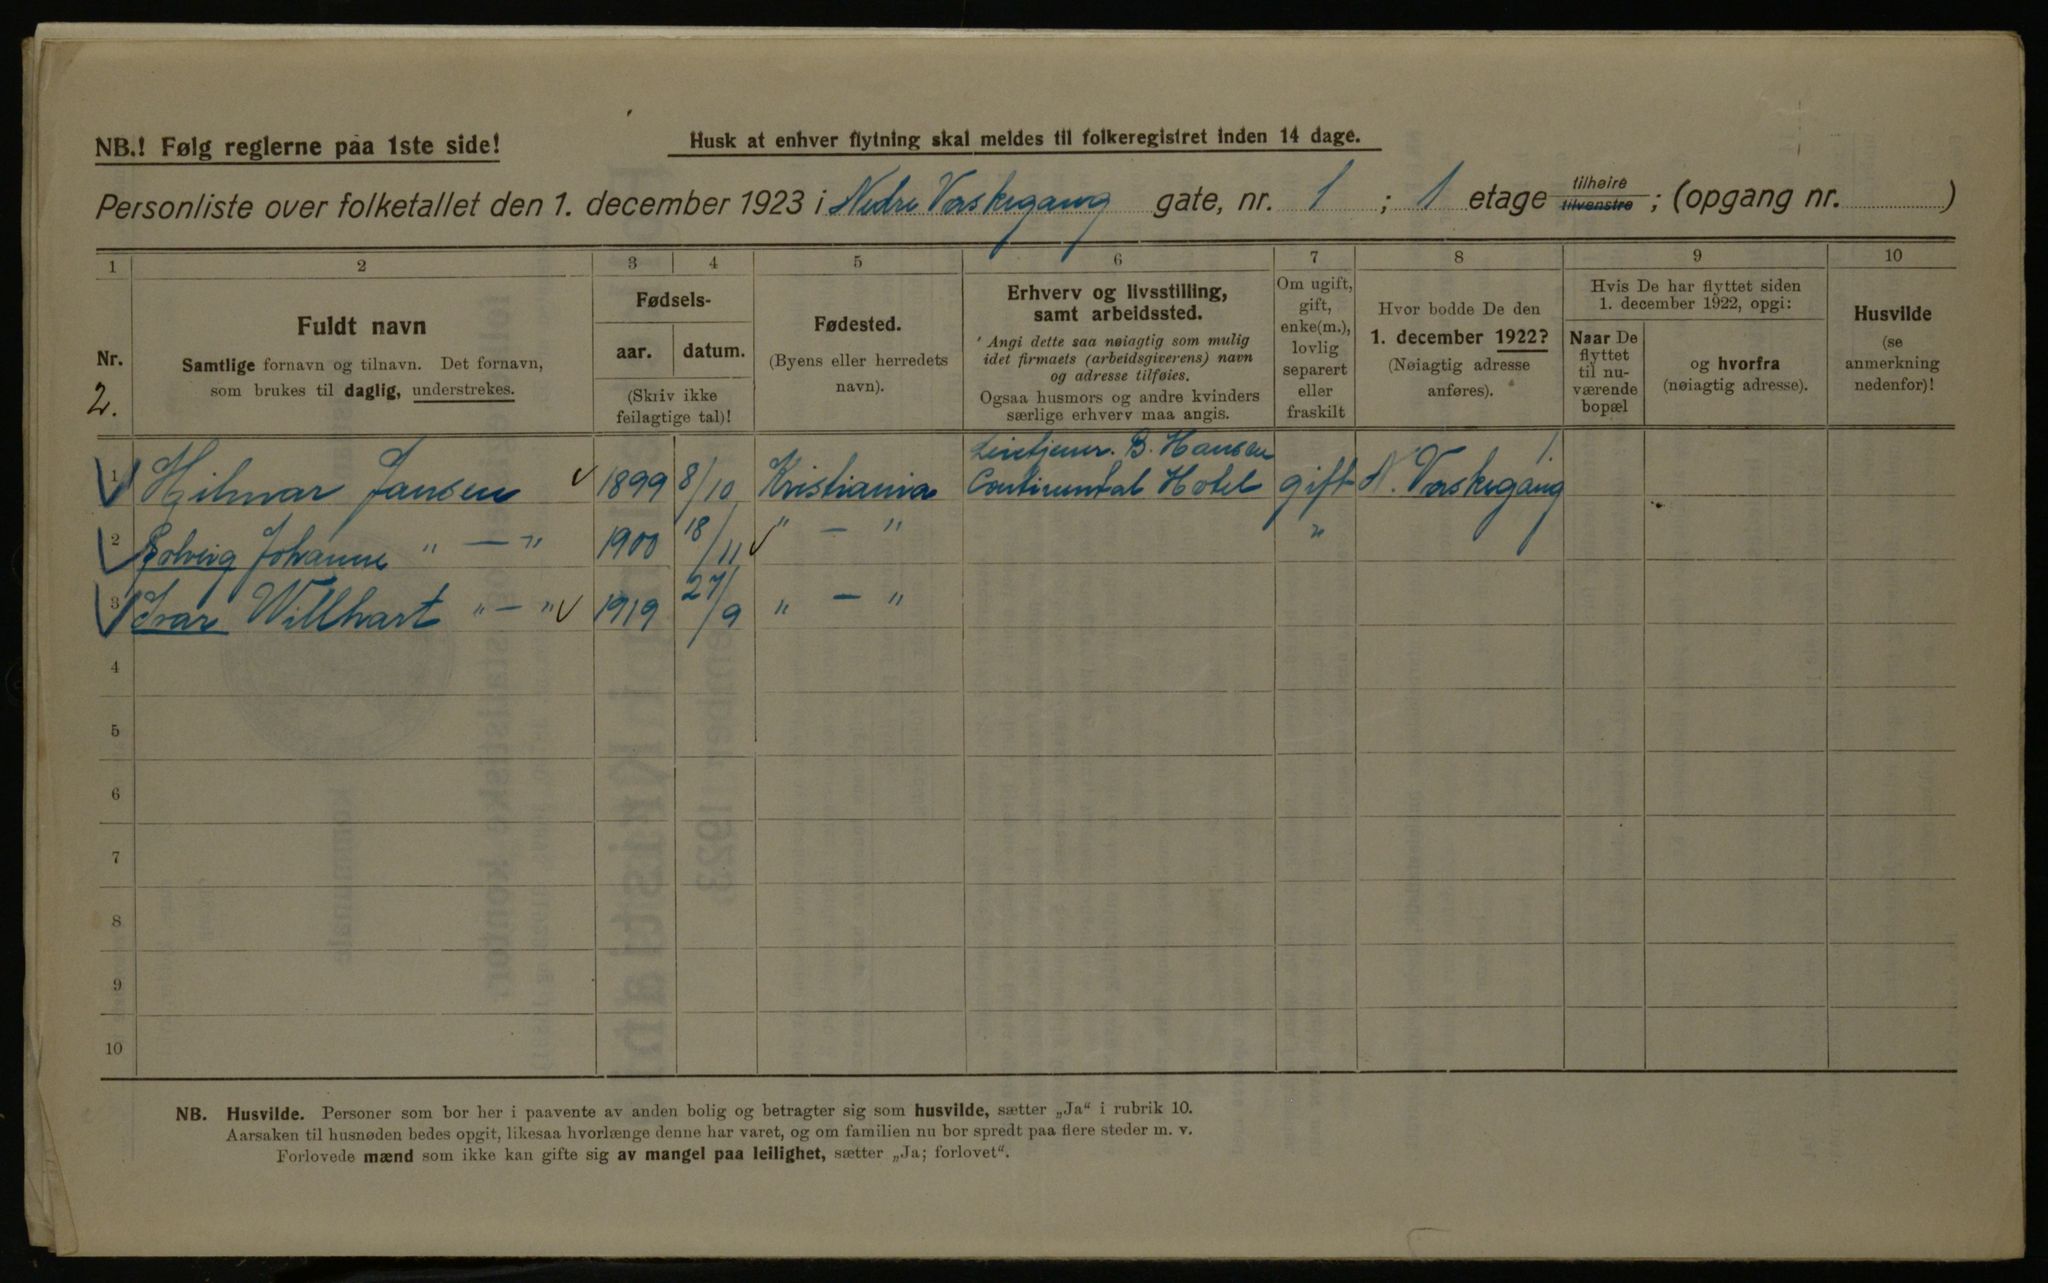 NB.! Følg reglerne paa 1ste side!
Husk at enhver flytning skal meldes til folkeregistret inden 14 dage.
Personliste over folketallet den 1. december 1923 i Nedre Vaskegang gate, nr. 1 ; 1 etage tilhøire tilvenstre ; (opgang nr. )
1 2 3 4 5 6 7 8 9 10
Nr.
2.
Fuldt navn
Samtlige fornavn og tilnavn. Det fornavn,
som brukes til daglig, understrekes.
Fødsels-
aar. datum.
(Skriv ikke
feilagtige tal)!
Fødested.
(Byens eller herredets
navn).
Erhverv og livsstilling,
samt arbeidssted.
Angi dette saa nøiagtig som mulig
idet firmaets (arbeidsgiverens) navn
og adresse tilføies.
Ogsaa husmors og andre kvinders
særlige erhverv maa angis.
Om ugift,
gift,
enke(m.),
lovlig
separert
eller
fraskilt
Hvor bodde De den
1. december 1922?
(Nøiagtig adresse
anføres).
Hvis De har flyttet siden
1. december 1922, opgi:
Naar De
flyttet
til nu-
værende
bopæl
og hvorfra
(nøiagtig adresse).
Husvilde
(se
anmerkning
nedenfor)!
B. Hansen 1.
1 Hjilmar Jansen 1899 8/10 Kristiania Continental Hotel gift N. Vaskegang
2 Solveig Johanne " — " 1900 18/11 " — " "
3 Ivar Willhart " — " 1919 27/9 " — "
4
5
6
7
8
9
10
NB. Husvilde. Personer som bor her i paavente av anden bolig og betragter sig som husvilde, sætter „Ja“ i rubrik 10.
Aarsaken til husnøden bedes opgit, likesaa hvorlænge denne har varet, og om familien nu bor spredt paa flere steder m. v.
Forlovede mænd som ikke kan gifte sig av mangel paa leilighet, sætter „Ja; forlovet“.